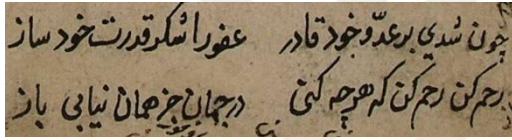 چون شدی بر عدّو خود قادر عفو را شکر قدرت خود ساز
رحم کن رحم کن که هر چه کنی در جهان جز همان نیابی باز